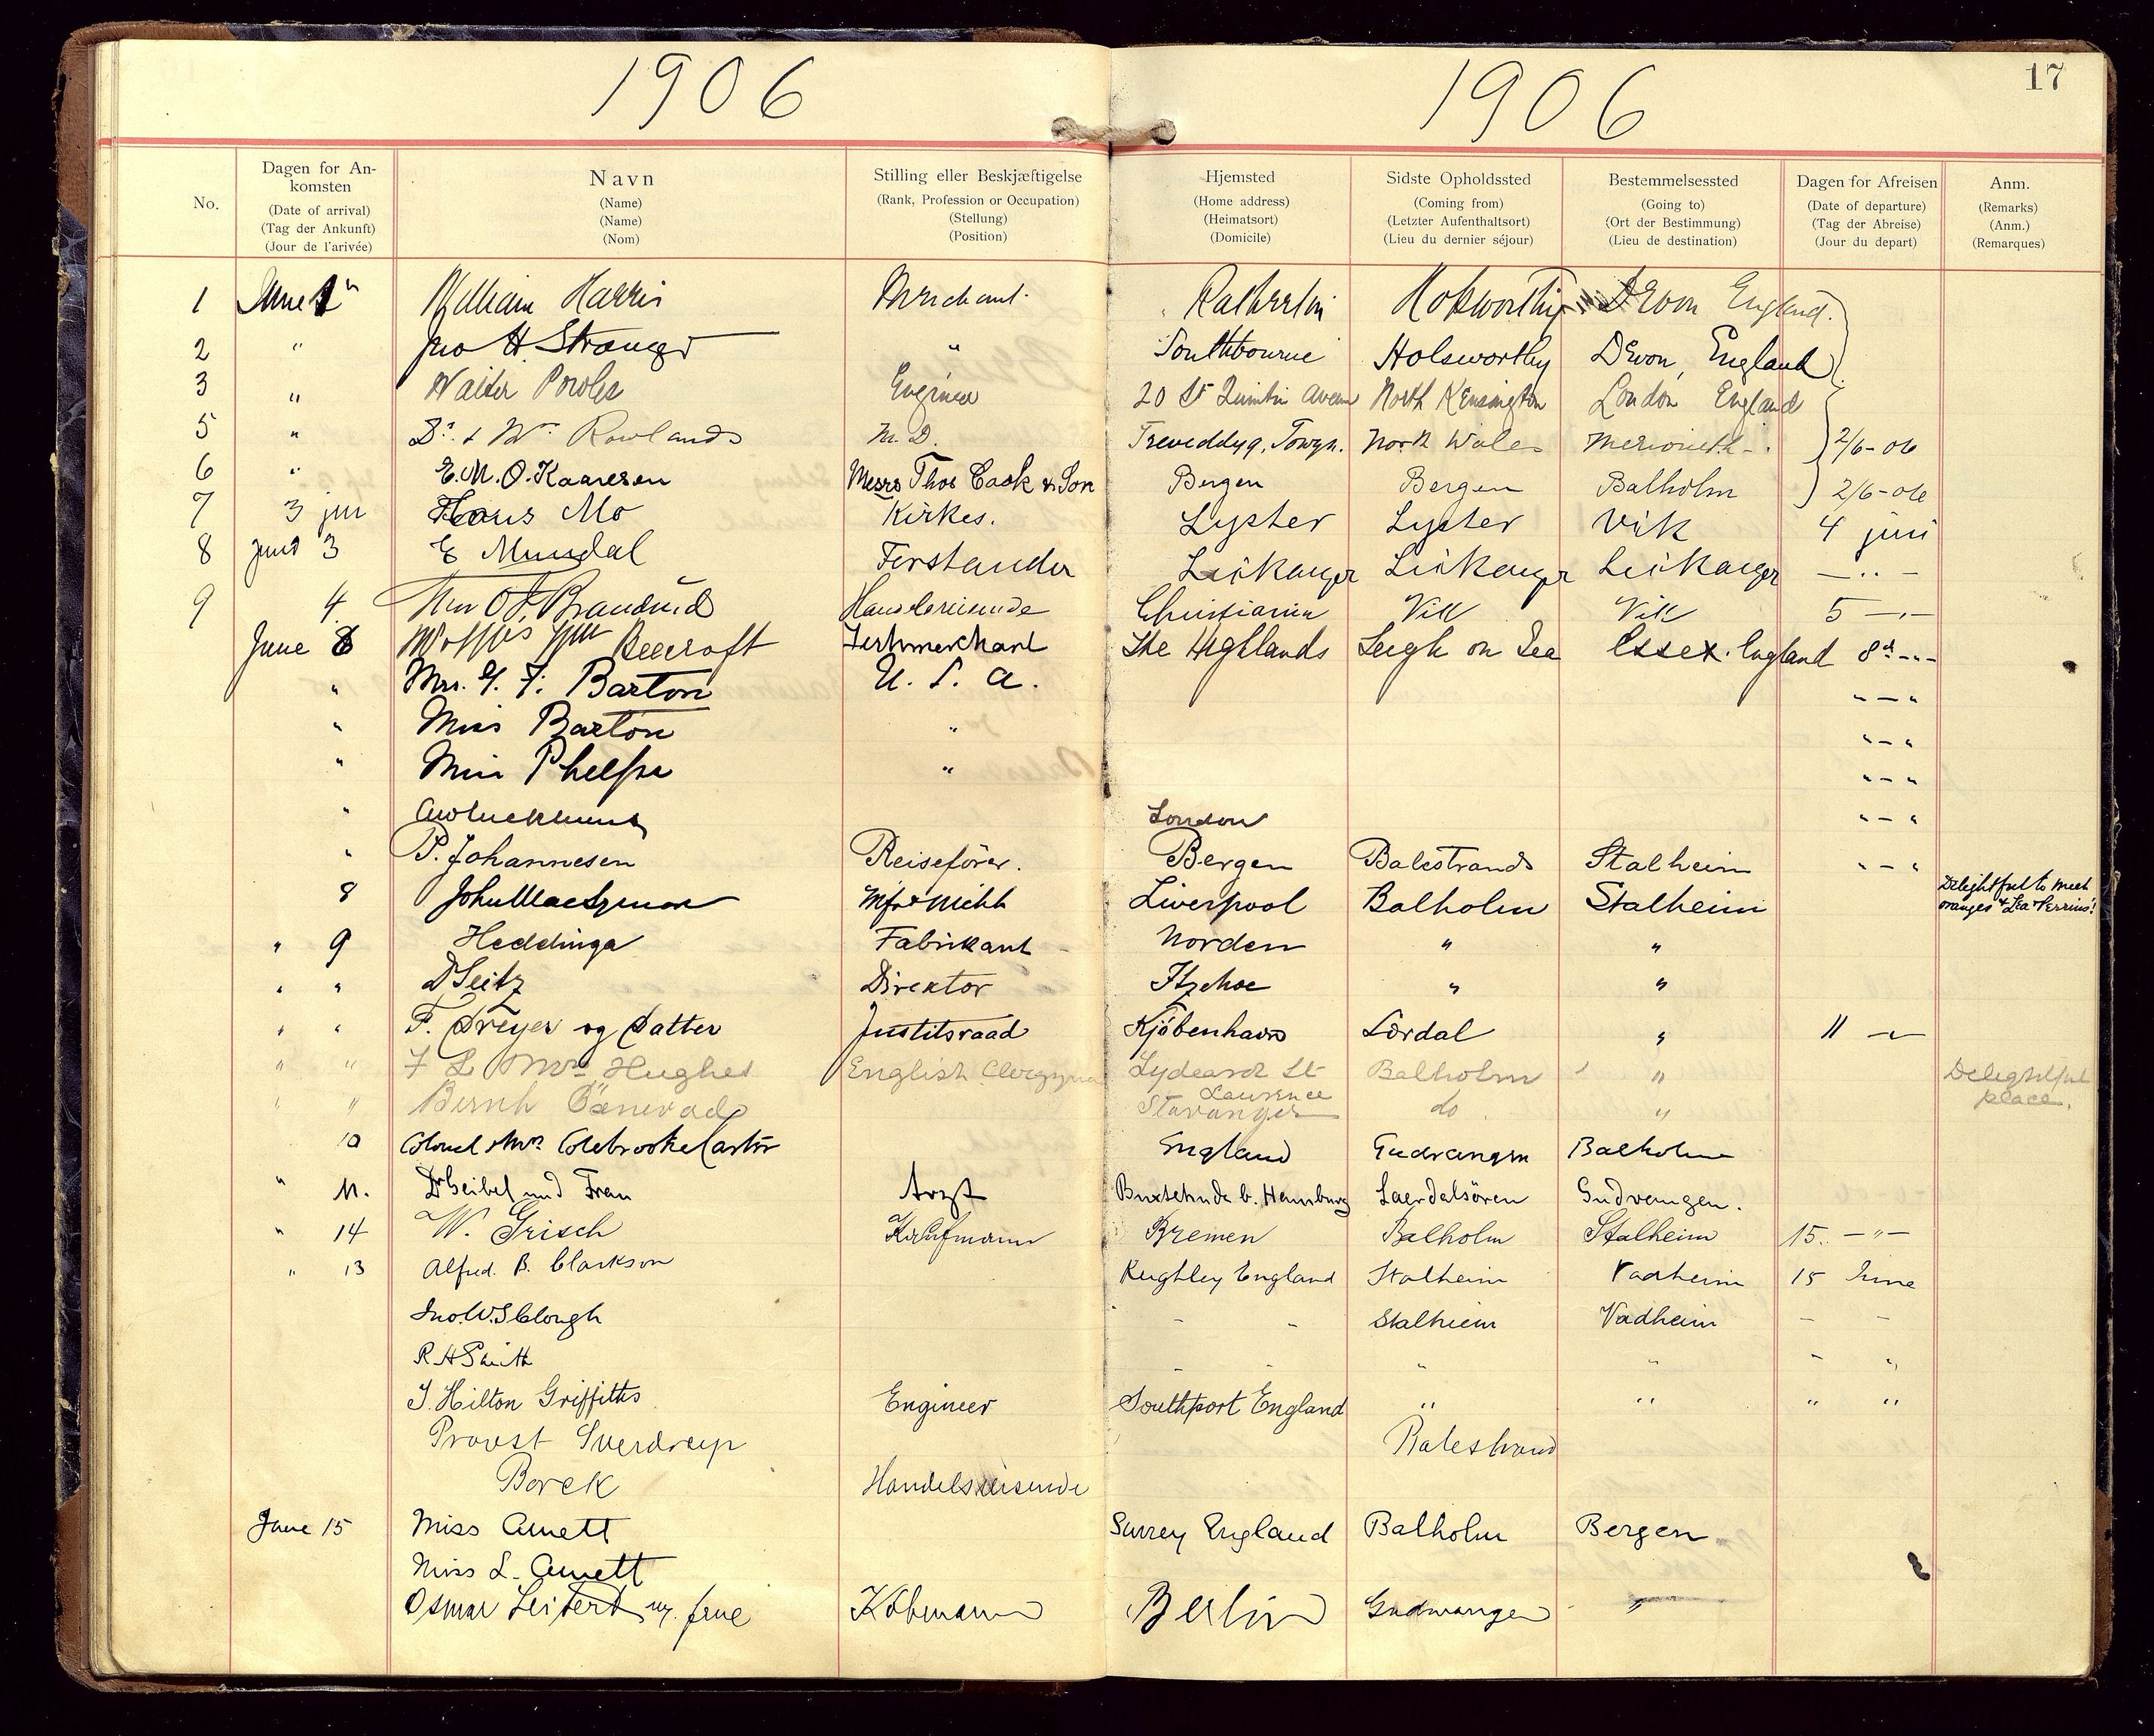 1906 1906 17
No.
Dagen for An-
komsten
(Date of arrival)
(Tag der Ankunft)
(Jour de l'arivée)
Navn
(Name)
(Name)
(Nom)
Stilling eller Beskjæftigelse
(Rank, Profession or Occupation)
(Stellung)
(Position)
Hjemsted
(Home address)
(Heimatsort)
(Domicile)
Sidste Opholdssted
(Coming from)
(Letzter Aufenthaltsort)
(Lieu du dernier séjour)
Bestemmelsessted
(Going to)
(Ort der Bestimmung)
(Lieu de destination)
Dagen for Afreisen
(Date of departure)
(Tag der Abreise)
(Jour du depart)
Anm.
(Remarks)
(Anm.)
(Remarques)
1 June William Harris Merchant Holsworthy Devon England.
2 " Jno H. " Southbourne Holsworthy Devon, England
3 " Walter Powles Engineer 20 St Quintin Avenue North Kensington London England
5 " Dr. & Mrs. Rowlands M. D. Towyn. North Wales Merioneth 2/6-06
6 " E. M. O. Kaaresen Messrs Thos Cook & Son Bergen Bergen Balholm 2/6-06
7 3 jun Hans Mo Kirkes. Lyster Lyster Vik 4 juni
8 juni 3 E Mundal Forstander Leikanger Leikanger Leikanger — " —
9 4 Handelsreisende Christiania Vik Vik 5 — " —
June 8 Wm Beecroft The Highlands Leigh on Sea Essex. England 8th
" Mrs. G. F. Barton U. S. A. " — "
" Miss Barton " " — "
" Miss Phelps " " — "
" London " — "
" P. Johannesen Reisefören. Bergen Balestrand Stalheim " — "
8 Liverpool Balholm Stalheim Delightful to meet
oranges & Lea & Perrins!
" 9 Heddinga Fabrikant Norden " "
" " D Seitz Direktor Itzehoe " "
" " F. Dreyer og Datter Justitsraad Kjöbenhavn Lærdal " 11
" " F L Mrs Hughes English Clergyman Lydeard St Balholm " Delightful
Laurence place.
" " Bernh Stavanger do. "
10 Colonel & Mrs Colebrooke Carter England Gudvangen Balholm
" 11. Dr Seibel und Frau Arzt Buxtehude b. Hamburg Laerdalsören Gudvangen.
" 14 W. Grisch Kaufmann Bremen Balholm Stalheim 15. — " —
" 13 Alfred. B. Clarkson Keighley England Stalheim Vadheim 15 June
Jno. W. S. Clough - - Stalheim Vadheim - -
R H Smith - - " " " "
J. Hilton Griffiths Engineer Southport England " " " "
Provst Sverdrup Balestrand
Borck Handelsreisende
June 15 Miss Arnett Surrey England Balholm Bergen
Miss L. Arnett
Osmar Leitert m. frue Köbmann Berlin Gudvangen "